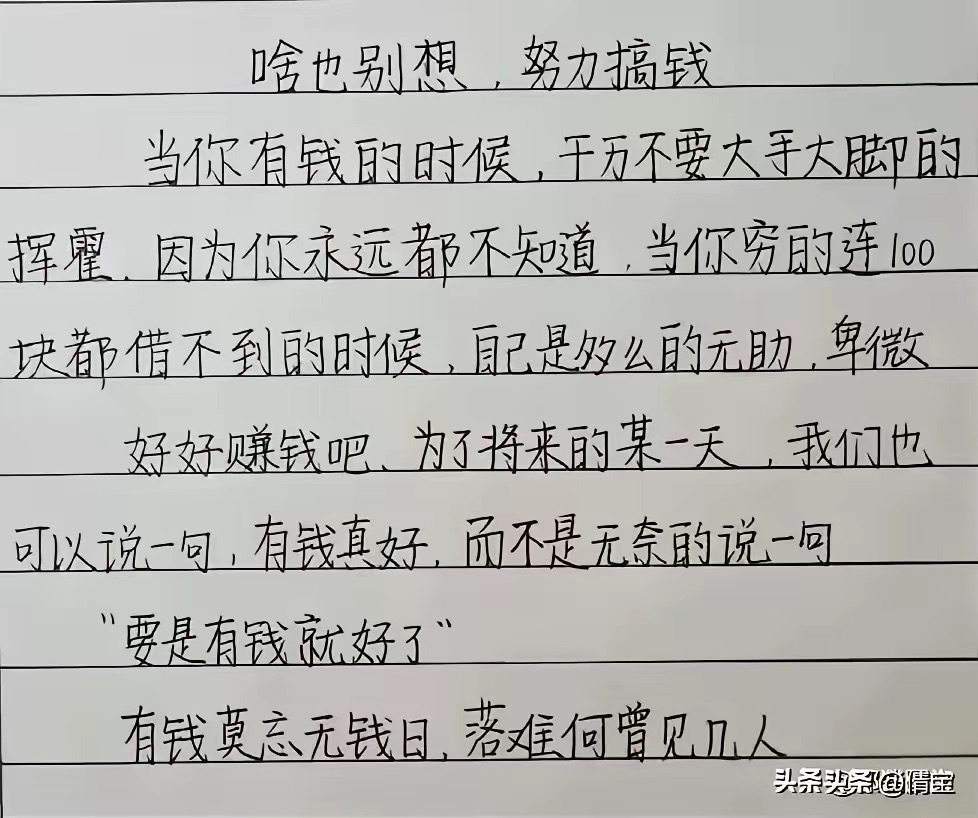 啥也别想，努力搞钱
当你有钱的时候，千万不要大手大脚的
挥霍、因为你永远都不知道，当你穷的连100
块都借不到的时候，自己是多么的无助，卑微
好好赚钱吧、为了将来的某一天，我们也
可以说一句，有钱真好，而不是无奈的说一句
"要是有钱就好了"
有钱莫忘无钱日，落难何曾见几人
头条 头条